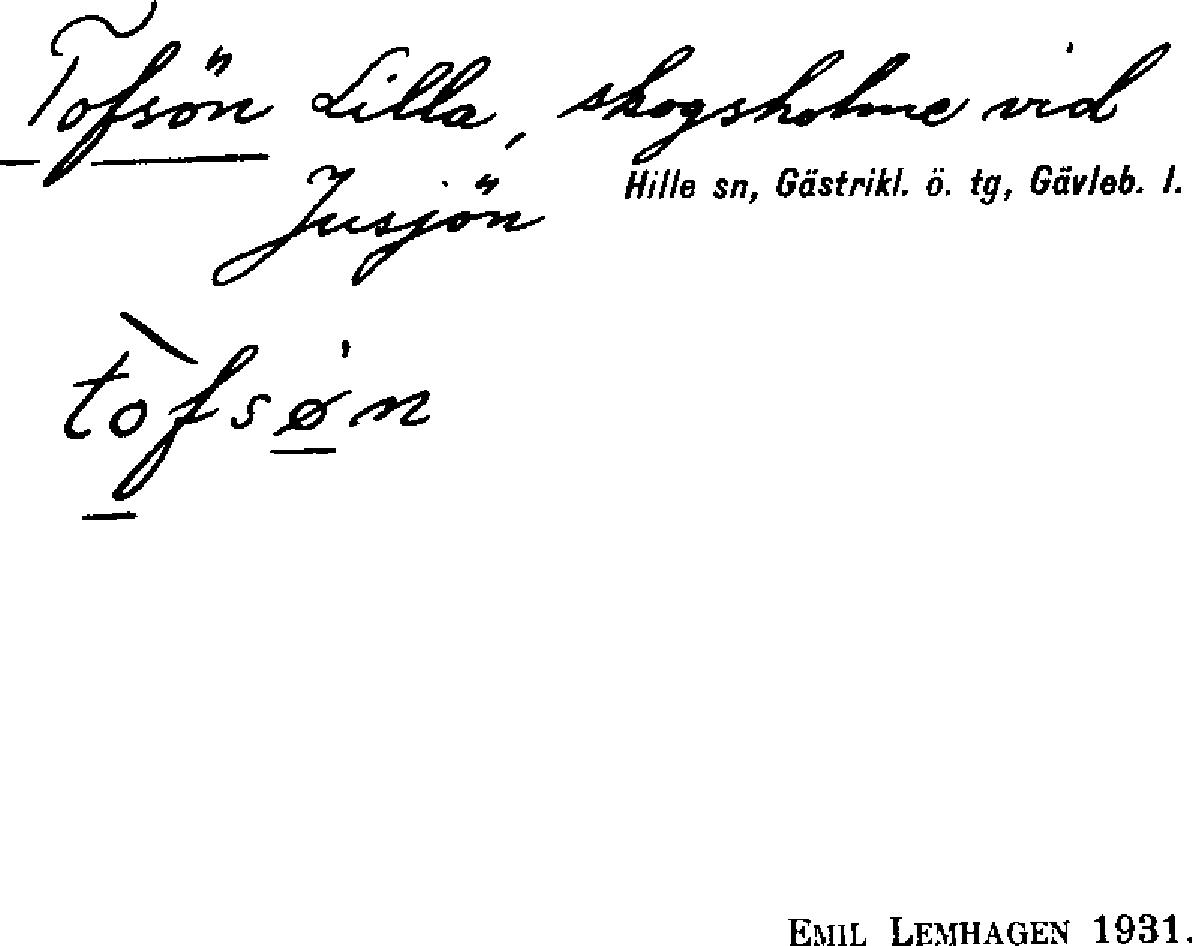 Tofsön Lilla, skogsholme vid
Jusjön Hille sn, Gästrikl. ö. tg, Gävleb. l.
tòfsø'n
EMIL LEMHAGEN 1931.